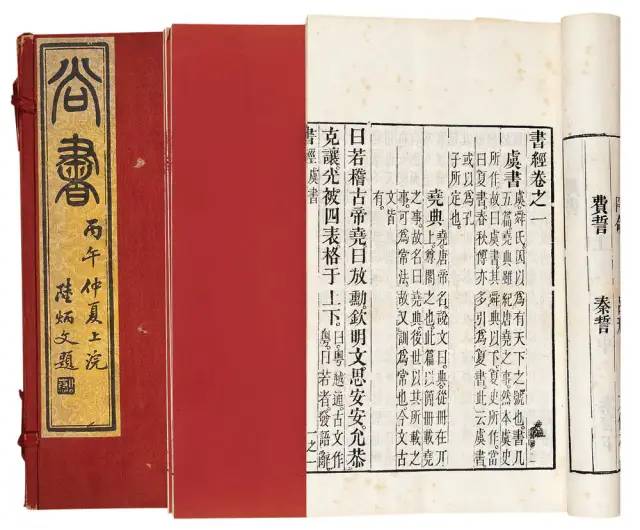 尚書
丙午仲夏上浣
陸炳文題
書經卷之一
虞書
虞舜氏因以爲有天下之號也。書凡
五篇堯典雖紀唐堯之事然本虞史
所作故曰虞書其舜典以下夏史所作當
曰夏書。春秋傳亦多引爲夏書此云虞書
或以爲孔
子所定也。
堯典
堯唐帝名。說文曰典從冊在丌
上。尊閣之也此篇以簡冊載堯
之事。故名曰堯典後世以其所載之
事。可爲常法故又訓爲常也今文古
文皆
有。
曰若稽古帝堯曰放勳。欽明文思安安。允恭
克讓。光被四表格于上下。
曰。粵。越通古文作
粵。曰若者發語辭
書經 虞書 一之一
費誓
秦誓